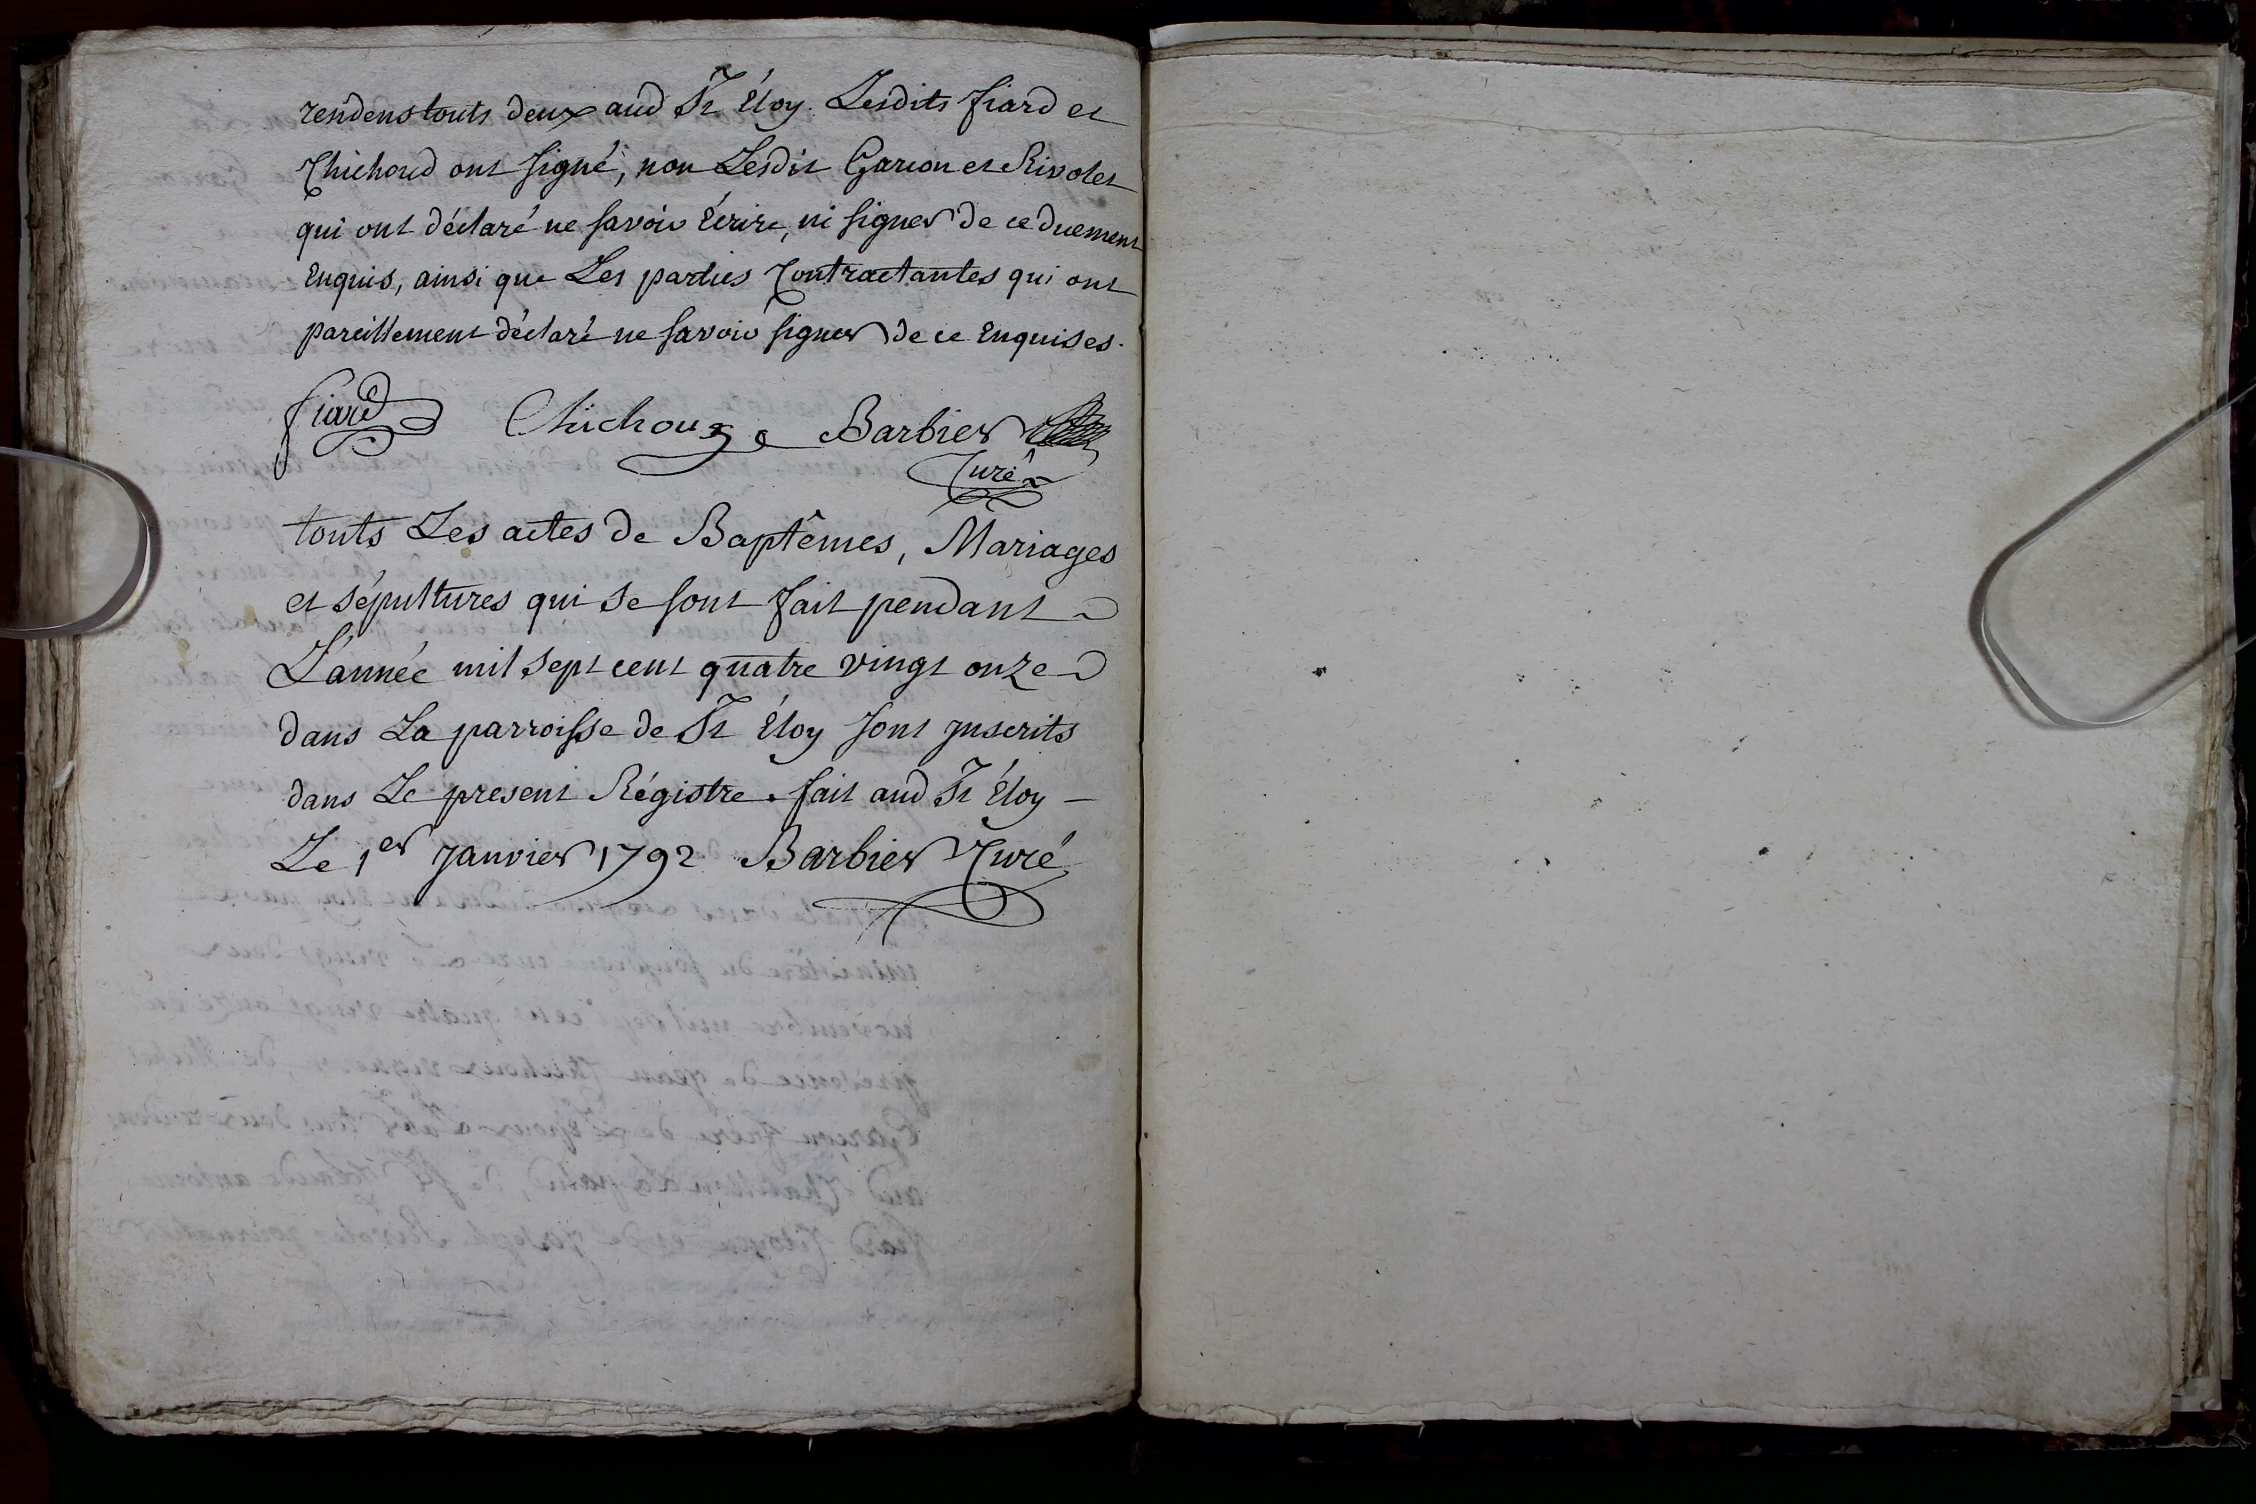 rendens touts deux aud St Éloy. Lesdits fiard et
Chichoud ont signé, non Lesdit Garion et Rivolet
qui ont déclaré ne savoir Écrire, ni signer de ce duement
Enquis, ainsi que Les parties Contractantes qui ont
pareillement déclaré ne savoir signer de ce Enquises.
fiard Chichoux Barbier
Curé
touts Les actes de Baptêmes, Mariages
et sépultures qui se sont fait pendant
L'année mil sept cent quatre vingt onze
dans La parroisse de St Éloy sont jnscrits
dans Le present Régistre. fait aud St Éloy —
Le 1er Janvier 1792 Barbier Curé